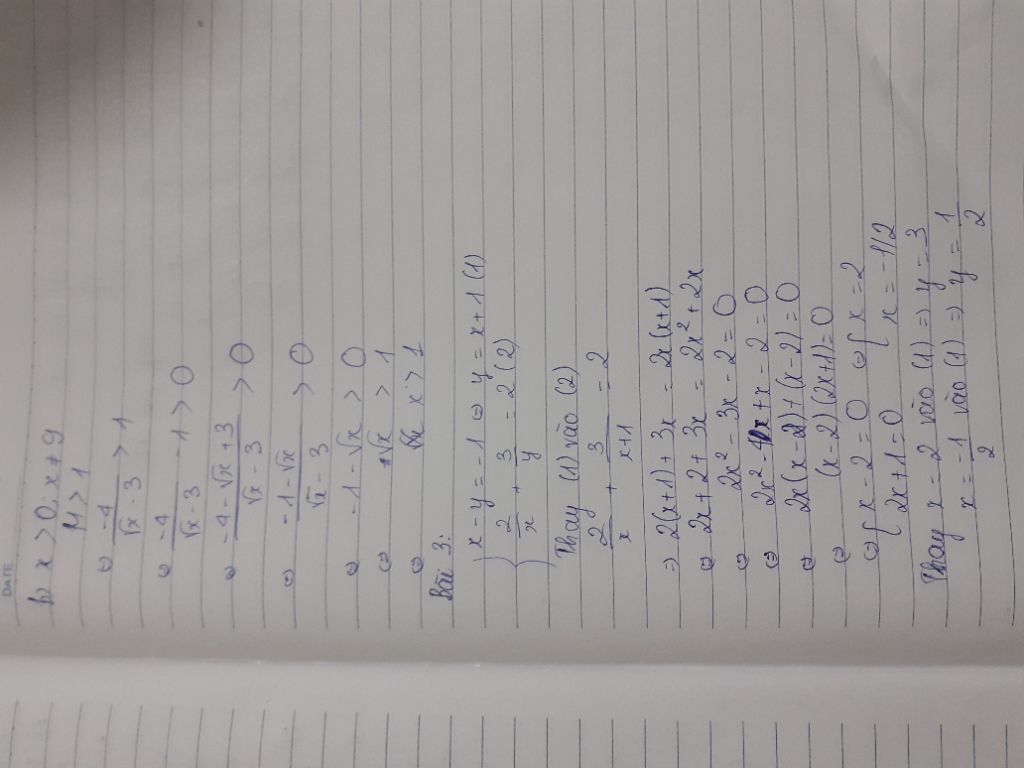 DATE
b) x > 0; x ≠ 9
M > 1
⇔ -4/(√x - 3) > 1
⇔ -4/(√x - 3) - 1 > 0
⇔ (-4 - √x + 3)/(√x - 3) > 0
⇔ (-1 - √x)/(√x - 3) > 0
⇔ -1 - √x > 0
⇔ √x > 1
⇔ x > 1
Bài 3:
{ x - y = -1 ⇔ y = x + 1 (1)
{ 2/x + 3/y = 2 (2)
Thay (1) vào (2)
2/x + 3/(x+1) = 2
⇒ 2(x+1) + 3x = 2x(x+1)
⇔ 2x + 2 + 3x = 2x² + 2x
⇔ 2x² - 3x - 2 = 0
⇔ 2x² - 4x + x - 2 = 0
⇔ 2x(x-2) + (x-2) = 0
⇔ (x-2)(2x+1) = 0
⇔ { x - 2 = 0 ⇔ { x = 2
{ 2x + 1 = 0 { x = -1/2
Thay x = 2 vào (1) ⇒ y = 3
x = -1/2 vào (1) ⇒ y = 1/2